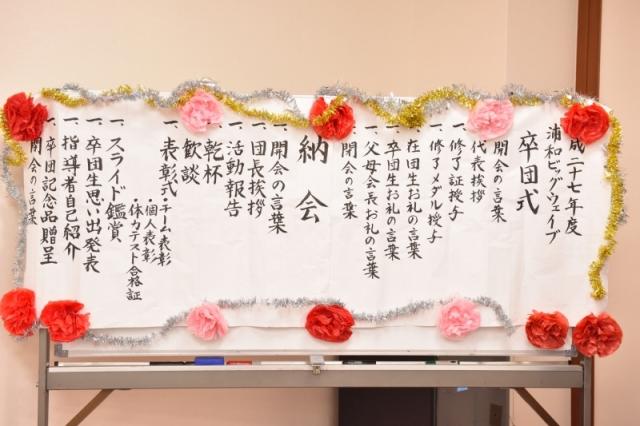 成二十七年度
浦和ビッグウェイブ
卒団式
開会の言葉
代表挨拶
一、修了証授与
一、修了メダル授与
一、在団生お礼の言葉
一、卒団生お礼の言葉
一、父母会長お礼の言葉
一、閉会の言葉
納会
一、開会の言葉
一、団長挨拶
一、活動報告
乾杯
歓談
一、表彰式・チーム表彰
・個人表彰
・体力テスト合格証
一、スライド鑑賞
一、卒団生思い出発表
一、指導者自己紹介
一、卒団記念品贈呈
閉会の言葉